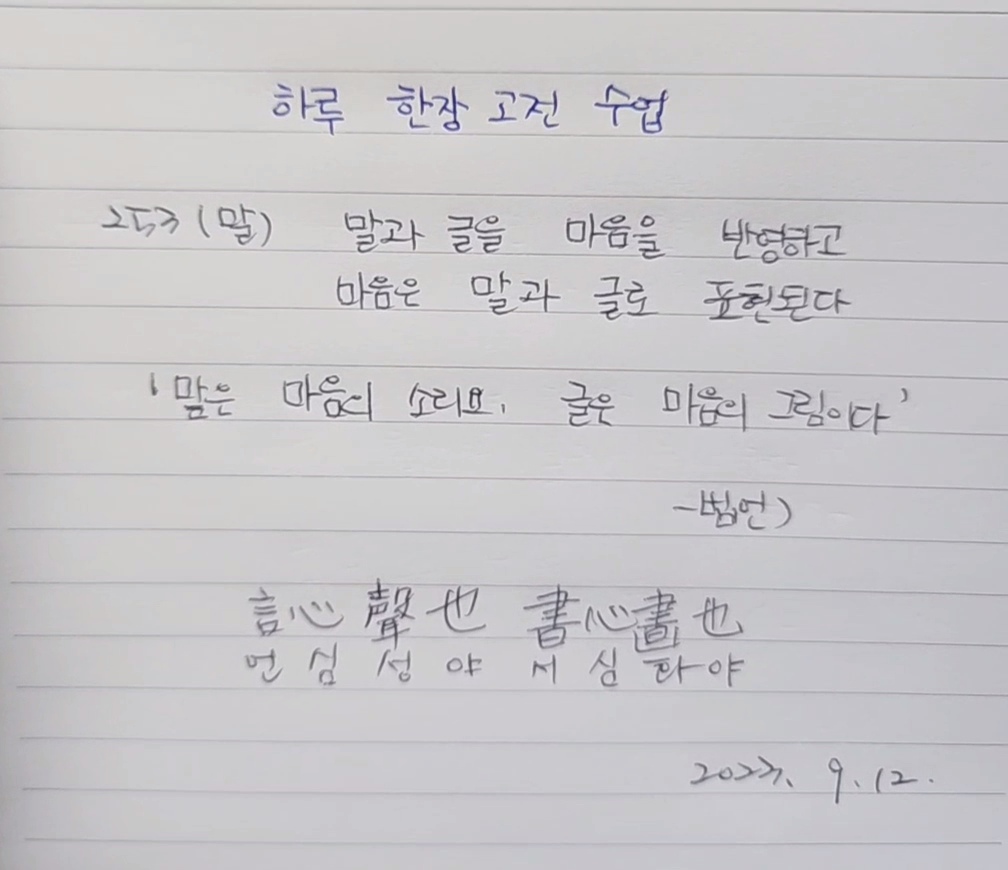 하루 한장 고전 수업
253 (말) 말과 글을 마음을 반영하고
마음은 말과 글로 표현된다
'말은 마음의 소리요, 글은 마음의 그림이다'
-법언)
言心聲也 書心畵也
언심성야 서심화야
2023. 9. 12.